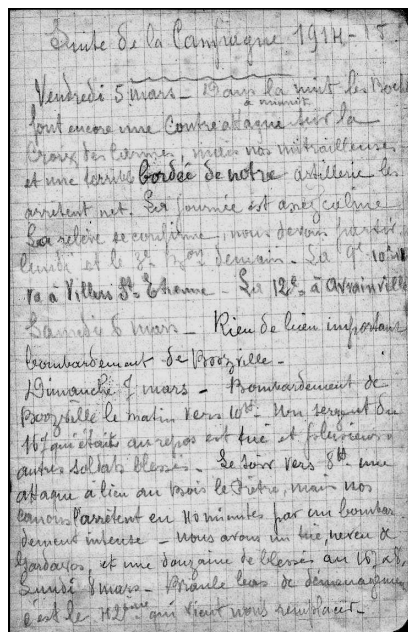 Suite de la Campagne 1914-15
Vendredi 5 mars - Dans la nuit les Boch
à minuit
font encore une Contre attaque sur la
Croix des Carmes, mais nos mitrailleuses
et une terrible bordée de notre artillerie les
arrêtent net. La journée est assez calme
La relève se confirme, nous devons partir
lundi et le 3e demain. La 9e
va à Villers St Etienne - La 12e à Avrainville
Samedi 6 mars - Rien de bien important
bombardement de
Dimanche 7 mars - Bombardement de
le matin vers 10h. Un sergent du
167 qui était au repos est tué et plusieurs
autres soldats blessés - Le soir vers 8h une
attaque à lieu au Bois le Prêtre, mais nos
canons l'arrêtent en 40 minutes par un bombar
dement intense - nous avons un tué, neveu de
et une douzaine de blessés au 167
Lundi 8 mars - Branle bas de déménagement
c'est le qui vient nous remplacer.